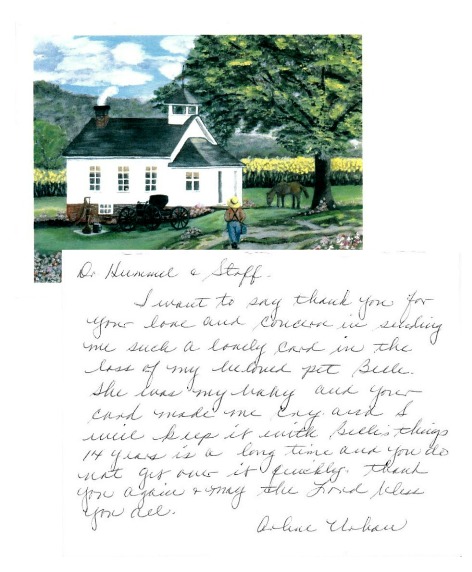 Dr Hummel & Staff.
I want to say thank you for
your love and concern in sending
me such a lovely card in the
loss of my beloved pet Belle.
She was my baby and your
card made me cry and I
will keep it with Belle's things
14 years is a long time and you do
not get over it quickly. Thank
you again & may the Lord bless
you all.
Arlene Urban